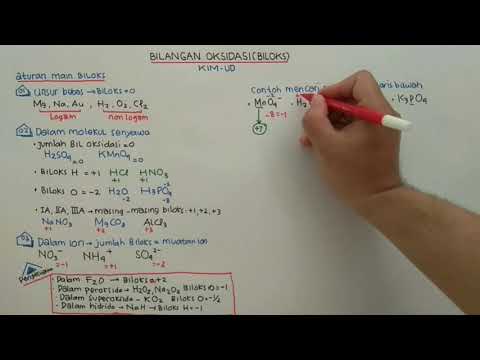 BILANGAN OKSIDASI (BILOKS)
KIM-UD
aturan main BILOKS
01 Unsur bebas → BILOKS = 0
Mg, Na, Au , H₂, O₃, Cl₂
Logam non logam
02 Dalam molekul senyawa
• jumlah BIL OKSIDASI = 0
H₂SO₄ = 0 KMnO₄ = 0
• Biloks H = +1 HCl HNO₃
+1 +1
• Biloks O = -2 H₂O H₃PO₄
-2 -2 -8
• IA, IIA, IIIA → masing-masing biloks +1, +2, +3
NaNO₃ MgCO₃ AlCl₃
+1 +2 +3
03 Dalam ion → jumlah Biloks = muatan ion
NO₃⁻ NH₄⁺ SO₄²⁻
= -1 = +1 = -2
• Dalam F₂O → Biloks O +2
• Dalam peroksida → H₂O₂, Na₂O₂ Biloks O = -1
• Dalam superoksida - KO₂ Biloks O = -½
• Dalam hidrida → NaH → Biloks H = -1
Contoh
• MnO₄⁻ • H₂ • K₃PO₄
-2
-8 = -1
+7